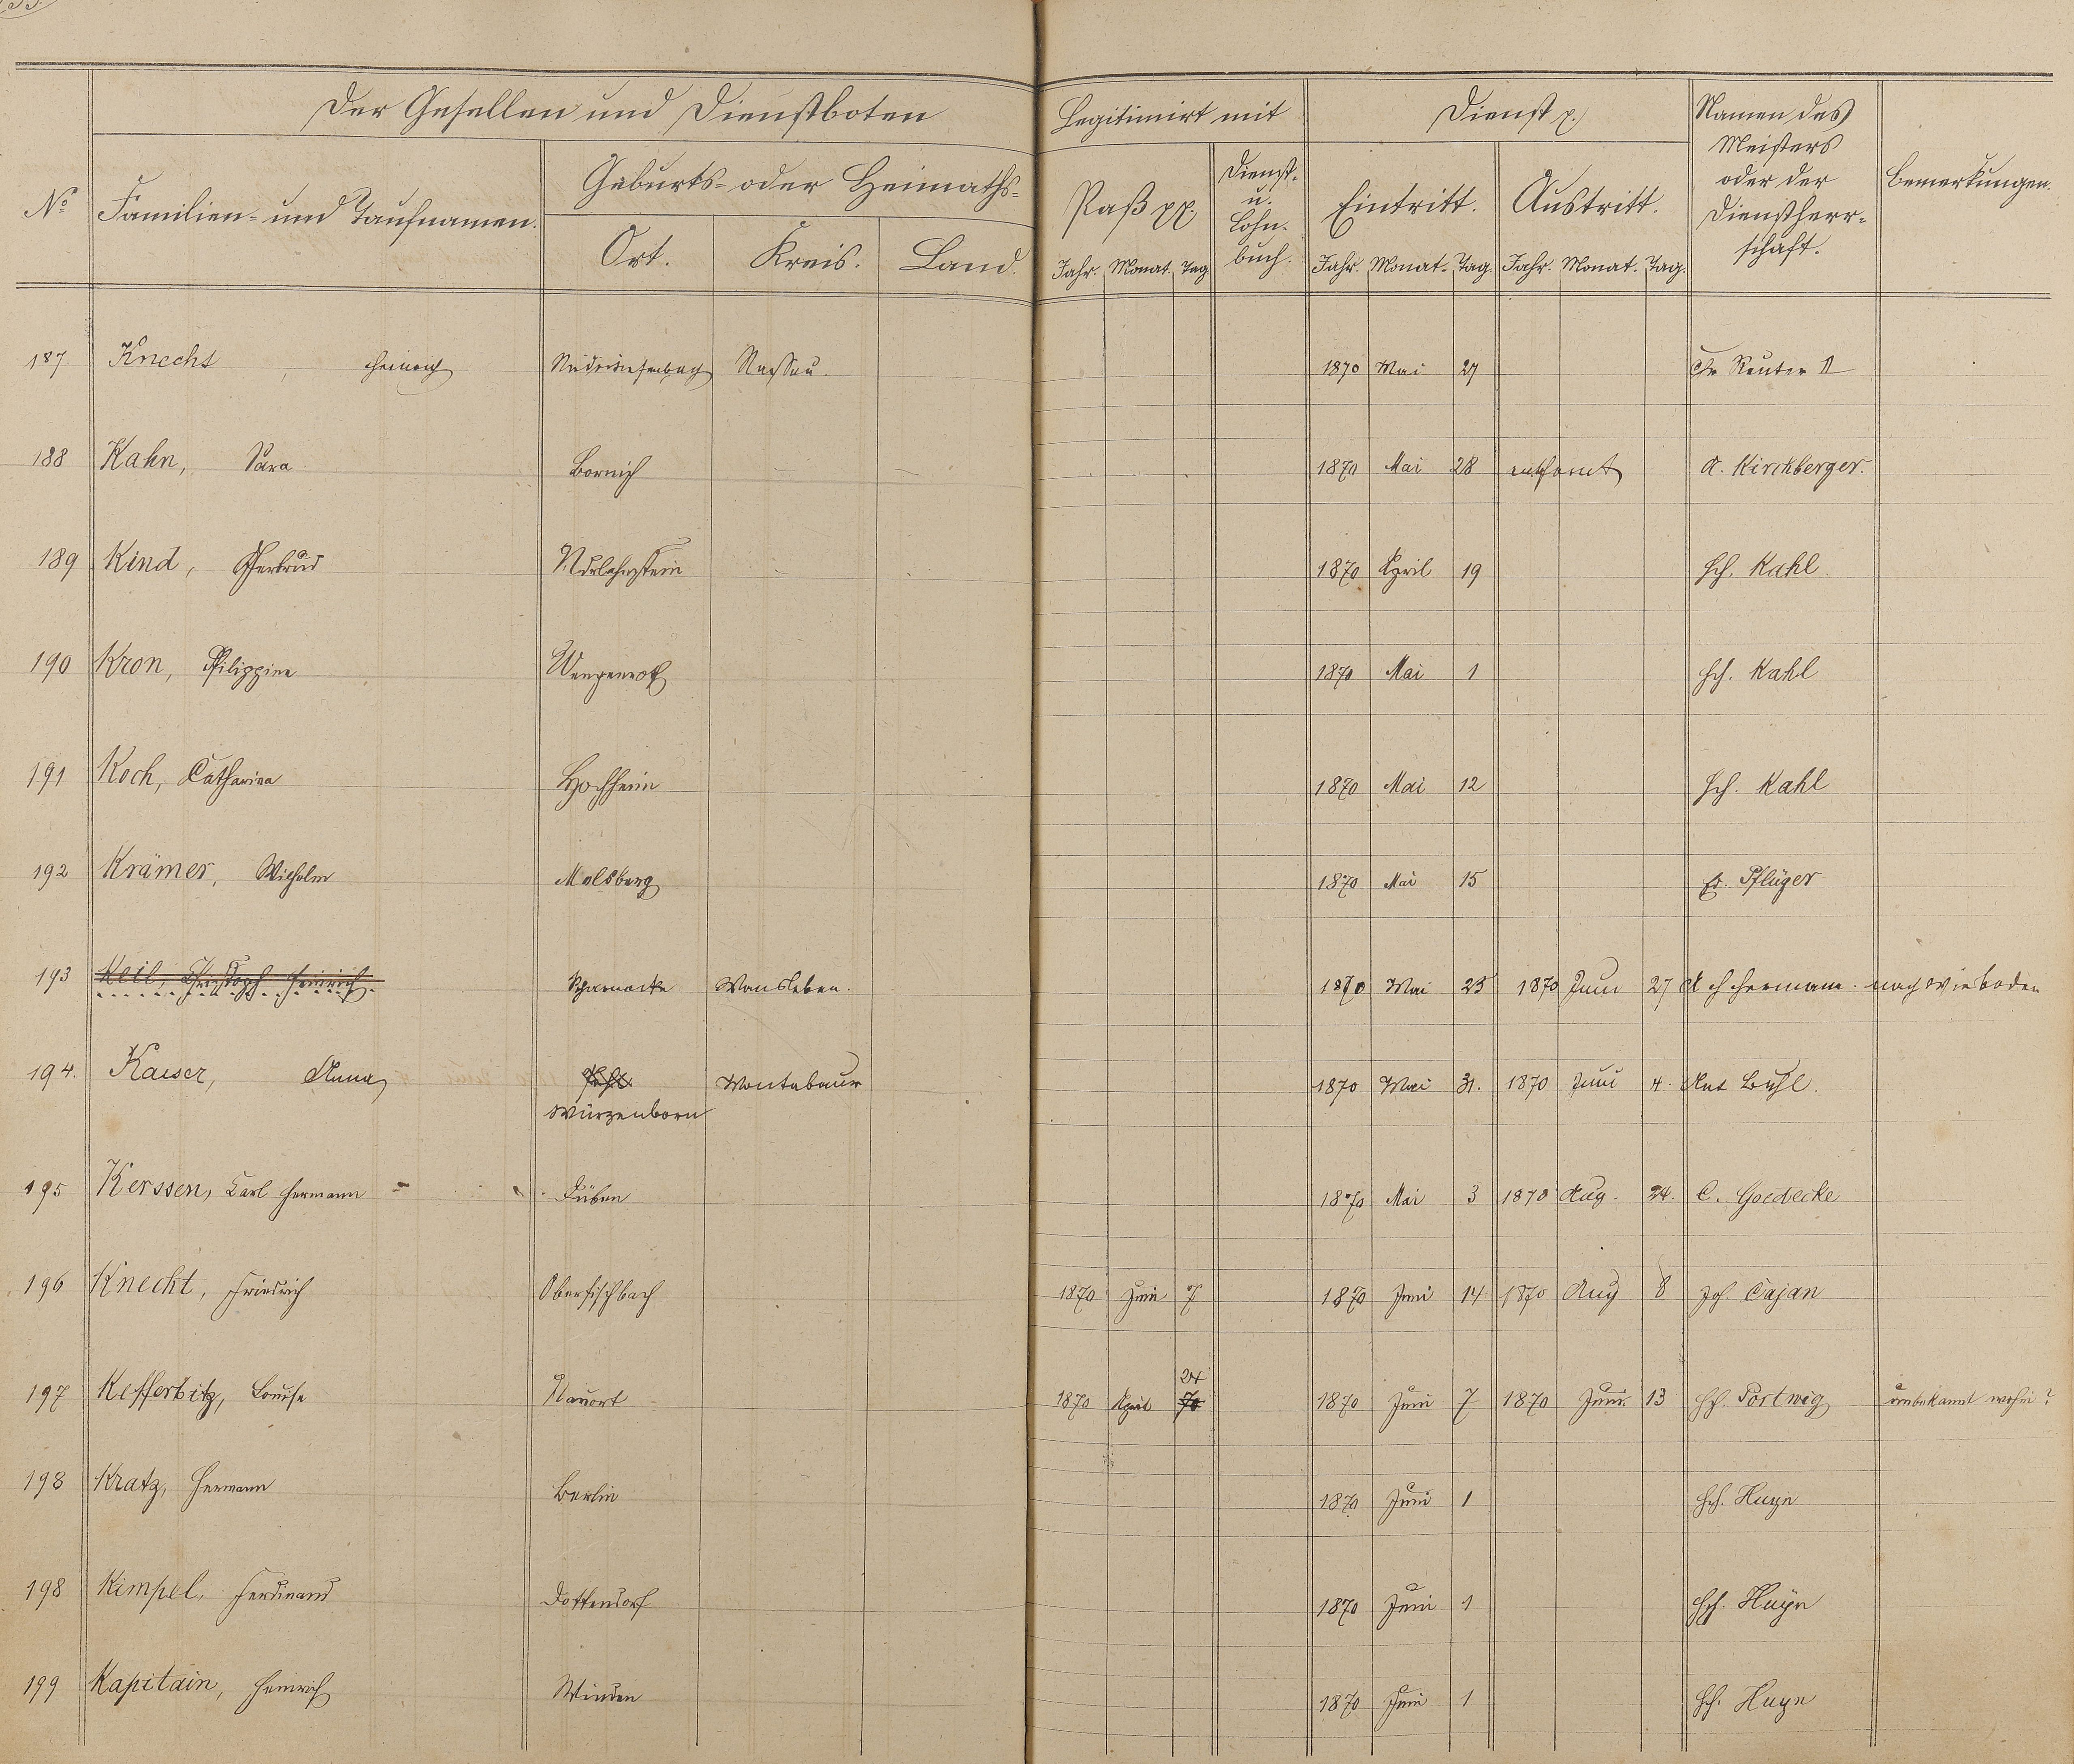 Der Gesellen und Dienstboten Legitimirt mit Dienst p.
Namen des Meisters oder der Dienstherr- schaft.
Bemerkungen.
No Familien- und Taufnamen. Geburts- oder Heimaths-
Ort. Kreis. Land.
Paß pp. Dienst- u. Lohn- buch. Eintritt. Austritt.
Jahr. Monat. Tag Jahr. Monat. Tag. Jahr. Monat. Tag.
187 Knecht, Heinrich Nassau. 1870 Mai 27 Chr Reuter II
188 Kahn, Sara Bornich 1870 Mai 28 entfernt A. Kirchberger.
189 Kind, Gertrud Ndrlahnstein 1870 April 19 Hch. Kahl.
190 Kron, Philippine Wengenroth 1870 Mai 1 Hch. Kahl
191 Koch, Catharina Hochheim 1870 Mai 12 Hch. Kahl
192 Krämer, Wilhelm Molsberg 1870 Mai 15 Fr. Pflüger
193 Keil, Christoph Heinrich. Wansleben. 1870 Mai 25 1870 Juni 27 A H Hermann. nach Wiesbaden
194. Kaiser, Anna Montabaur 1870 Mai 31. 1870 Juni 4. Ant Buhl.
Würzenborn
195 Kerssen, Carl Hermann Düben 1870 Mai 3 1870 Aug. 24. C. Goedecke
196 Knecht, Friedrich Oberfischbach 1870 Juni 7 1870 Juni 14 1870 Aug 8 Joh. Cajan
24
197 Kefferbitz, Louise Nauort 1870 April 70 1870 Juni 7 1870 Juni. 13 Hch. Portweg unbekannt wohin?
198 Kratz, Hermann Berlin 1870 Juni 1 Hch. Huyn
198 Kimpel, Ferdinand Dottendorf 1870 Juni 1 Hch. Huyn
199 Kapitain, Heinrich Winden 1870 Juni 1 Hch. Huyn